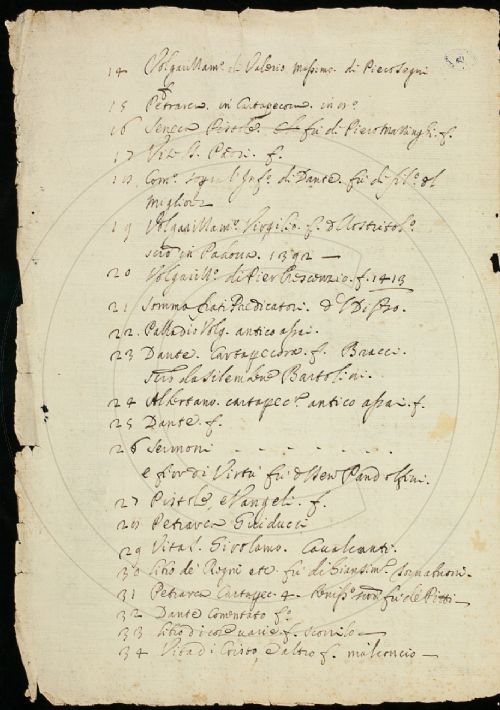 14 Volgarizzam.o di Valerio Massimo. di Piero Segni
15 Petrarca in Cartapecora in
16 Seneca Pistole. fu di Piero f.
17 Vite S. Padri. f.
18 Com.o sopra l'Inf.o di Dante fu di fil.o del
Migliore
19 Volgarizzam.o Virgilio. f.
in Padova 1392 —
20 Volgarizz.o di Pier Crescenzio. f. 1413
21 Somma frati Predicatori.
22. Palladio Volg. antico assai.
23 Dante. Cartapecora. f. Bracci.
Bartolini.
24 Albertano. cartapec.a antico assai. f.
25 Dante. f.
26 Sermoni . . . . . . .
e fior di Virtù fu Pandolfini.
27 Pistole, e Vangeli. f.
28 Petrarca Guiducci
29 Vita S. Girolamo. Cavalcanti.
30 libro de' Regni etc. fu di
31 Petrarca Cartapec. 4. fu de Pitti —
32 Dante comentato f.o
33 libro di cose varie f. —
34 Vita di Cristo, e altro f. malconcio —